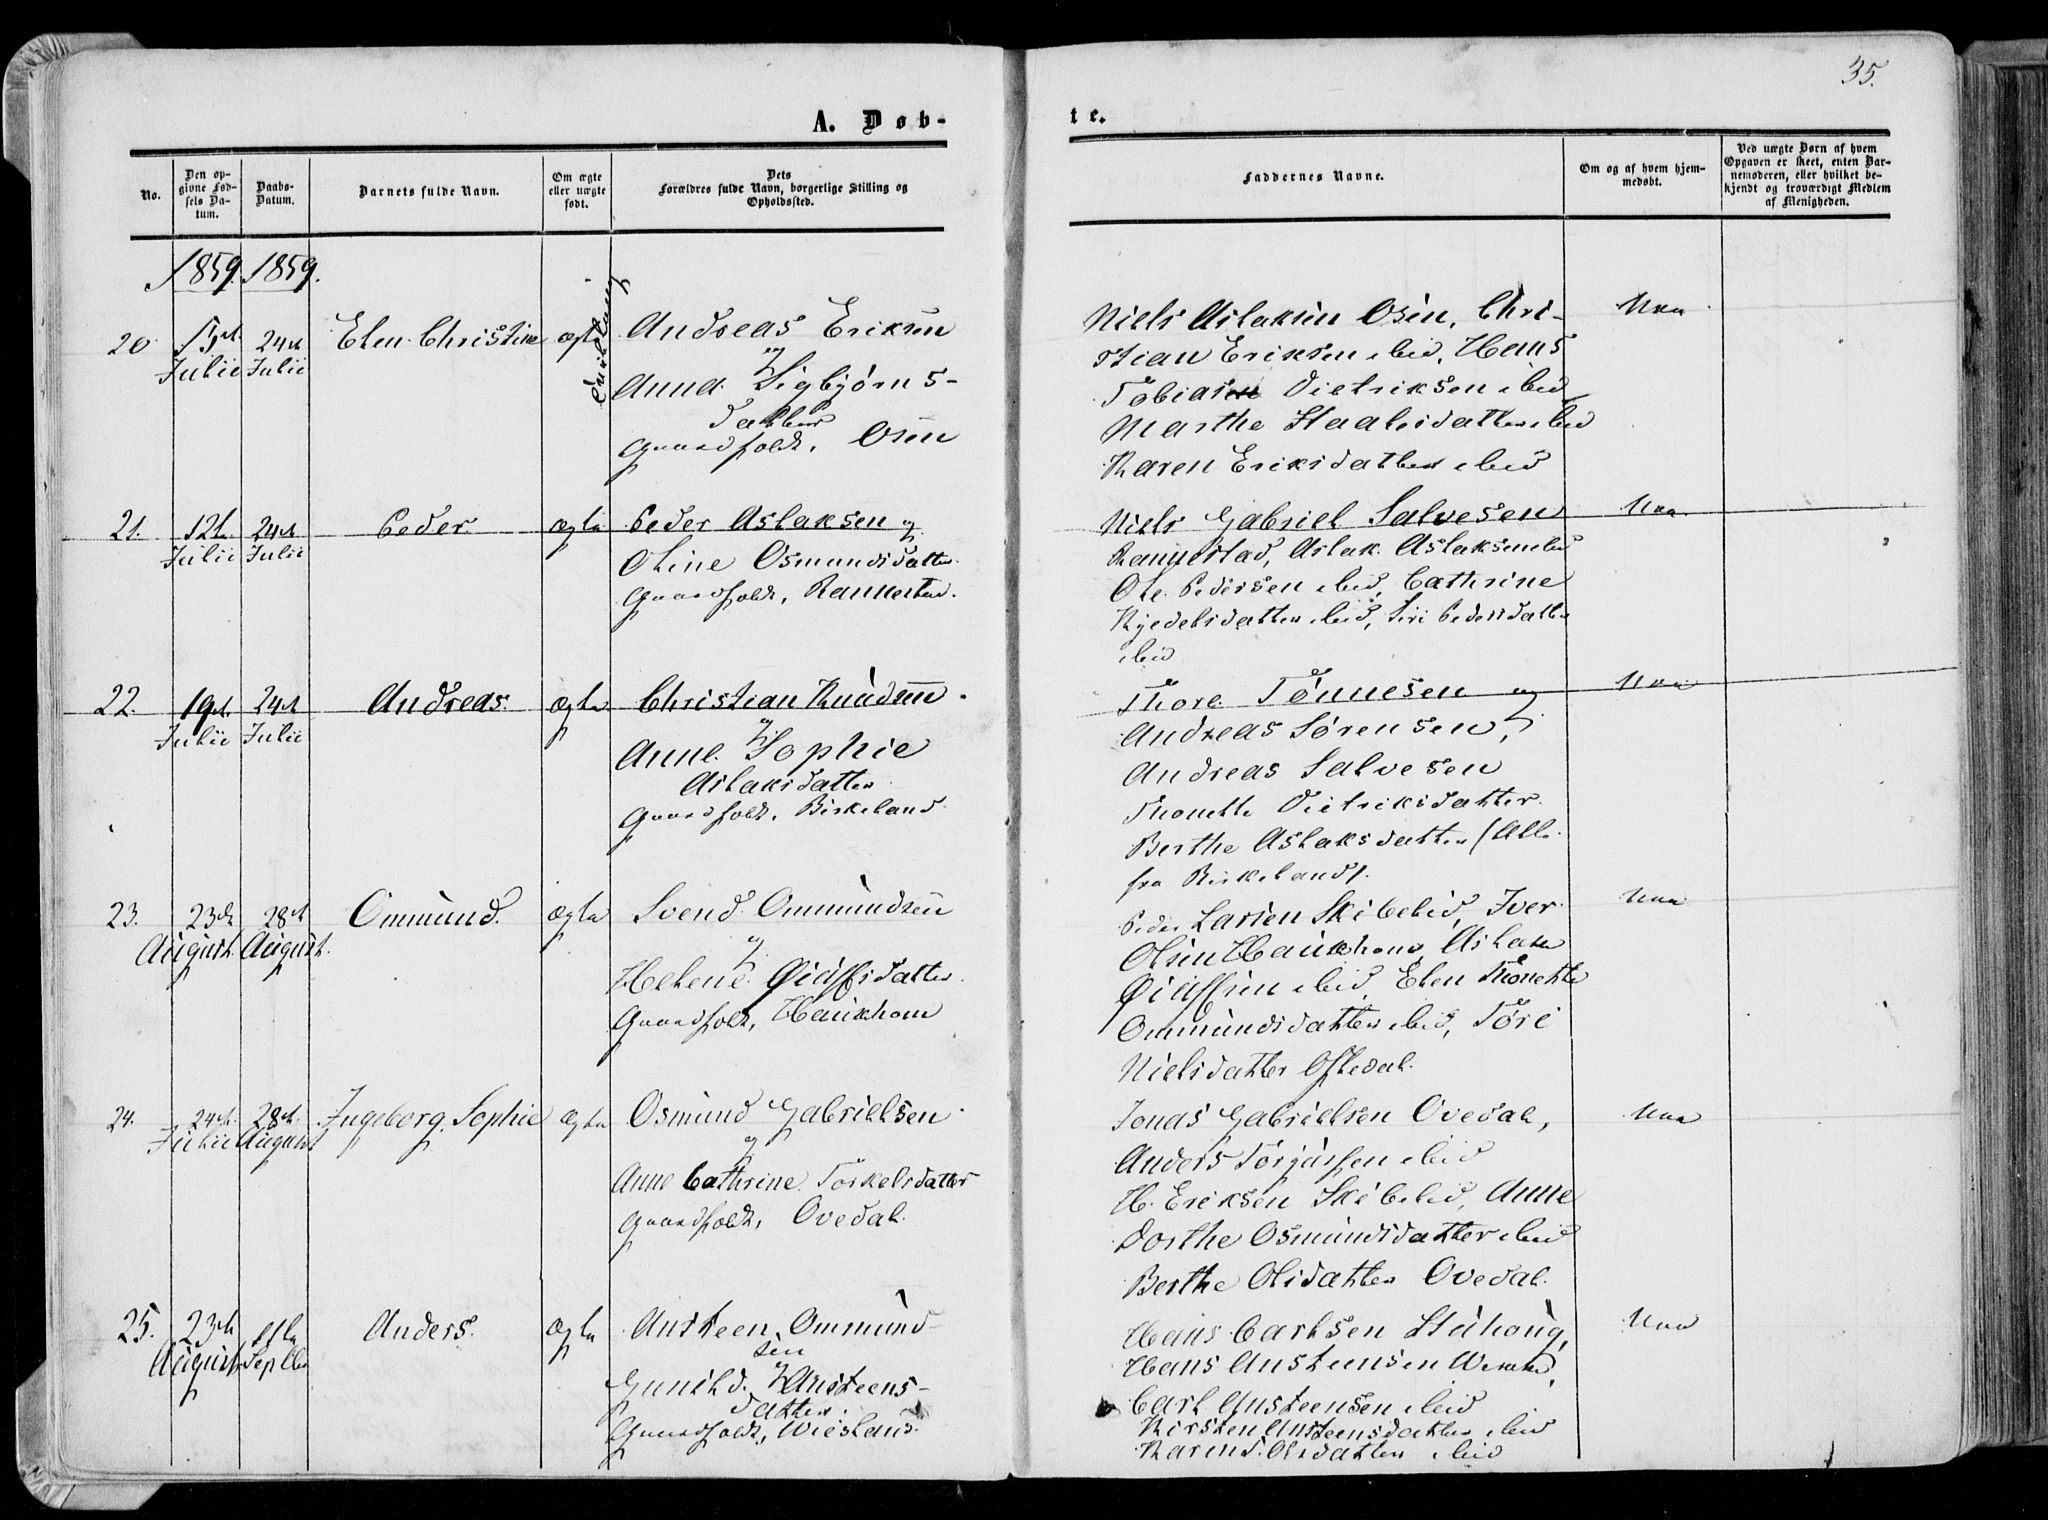 35.
A. Døb-
te.
No.
Den op-
givne Fød-
sels Da-
tum.
Daabs-
Datum.
Barnets fulde Navn.
Om ægte
eller uægte
født.
Dets
Forældres fulde Navn, borgerlige Stilling og
Opholdssted.
Faddernes Navne.
Om og af hvem hjem-
medøbt.
Ved uægte Børn af hvem
Opgaven er skeet, enten Bar-
nemoderen, eller hvilket be-
kjendt og troværdigt Medlem
af Menigheden.
1859. 1859.
20
Julii
24de
Julii
Elen Christine
ægte
Andreas Eriksen
og
Anna Sigbjørns-
datter
Gaardfolk, Osen
Niels Aslaksen Osen, Chri-
stian Eriksen ibid, Hans
Tobias Dietriksen ibid
Marthe Staalesdatter ibid
Karen Eriksdatter ibid
Nei
21.
12te
Julii
24de
Julii
Peder
ægte
Peder Aslaksen og
Oline Osmundsdatter
Gaardfolk, Rannestad.
Niels Gabriel Salvesen
Rannestad, Aslak Aslaksen ibid
Ole Pedersen ibid, Cathrine
Kjedelsdatter ibid, Siri Pedersdatter
ibid
Nei
22.
19de
Julii
24de
Julii
Andreas.
ægte
Christian Knudsen
og
Anne Sophie
Aslaksdatter
Gaardfolk, Birkeland
Thore Tønnesen og
Andreas Sørensen,
Andreas Salvesen
Thonette Dietriksdatter
Berthe Aslaksdatter (Alle
fra Birkeland).
Nei
23.
23de
August
28de
August.
Ommund.
ægte
Svend Ommundsen
og
Helene
Gaardfolk, Haukhom
Peder Larsen Skibelid, Iver
Olsen Haukhom, Aslak
ibid, Elen Thonette
Ommundsdatter ibid, Tøri
Nielsdatter Oftedal.
Nei
24.
24de
Julii
28de
August
Ingeborg Sophie
ægte
Osmund Gabrielsen
og
Anne Cathrine Torkelsdatter
Gaardfolk, Ovedal.
Jonas Gabrielsen Ovedal,
Anders Torjussen ibid
H. Eriksen Skibelid, Anne
Dorthe Osmundsdatter ibid
Berthe Olsdatter Ovedal.
Nei
25.
23de
August
Septbr
Anders.
ægte
Austeen Ommund-
sen
og
Gunild Austeens-
datter.
Gaardfolk, Wiesland.
Hans Carlsen
Hans Austeensen
Carl Austeensen ibid
Kirsten Austeensdatter ibid
Olsdatter ibid
Nei